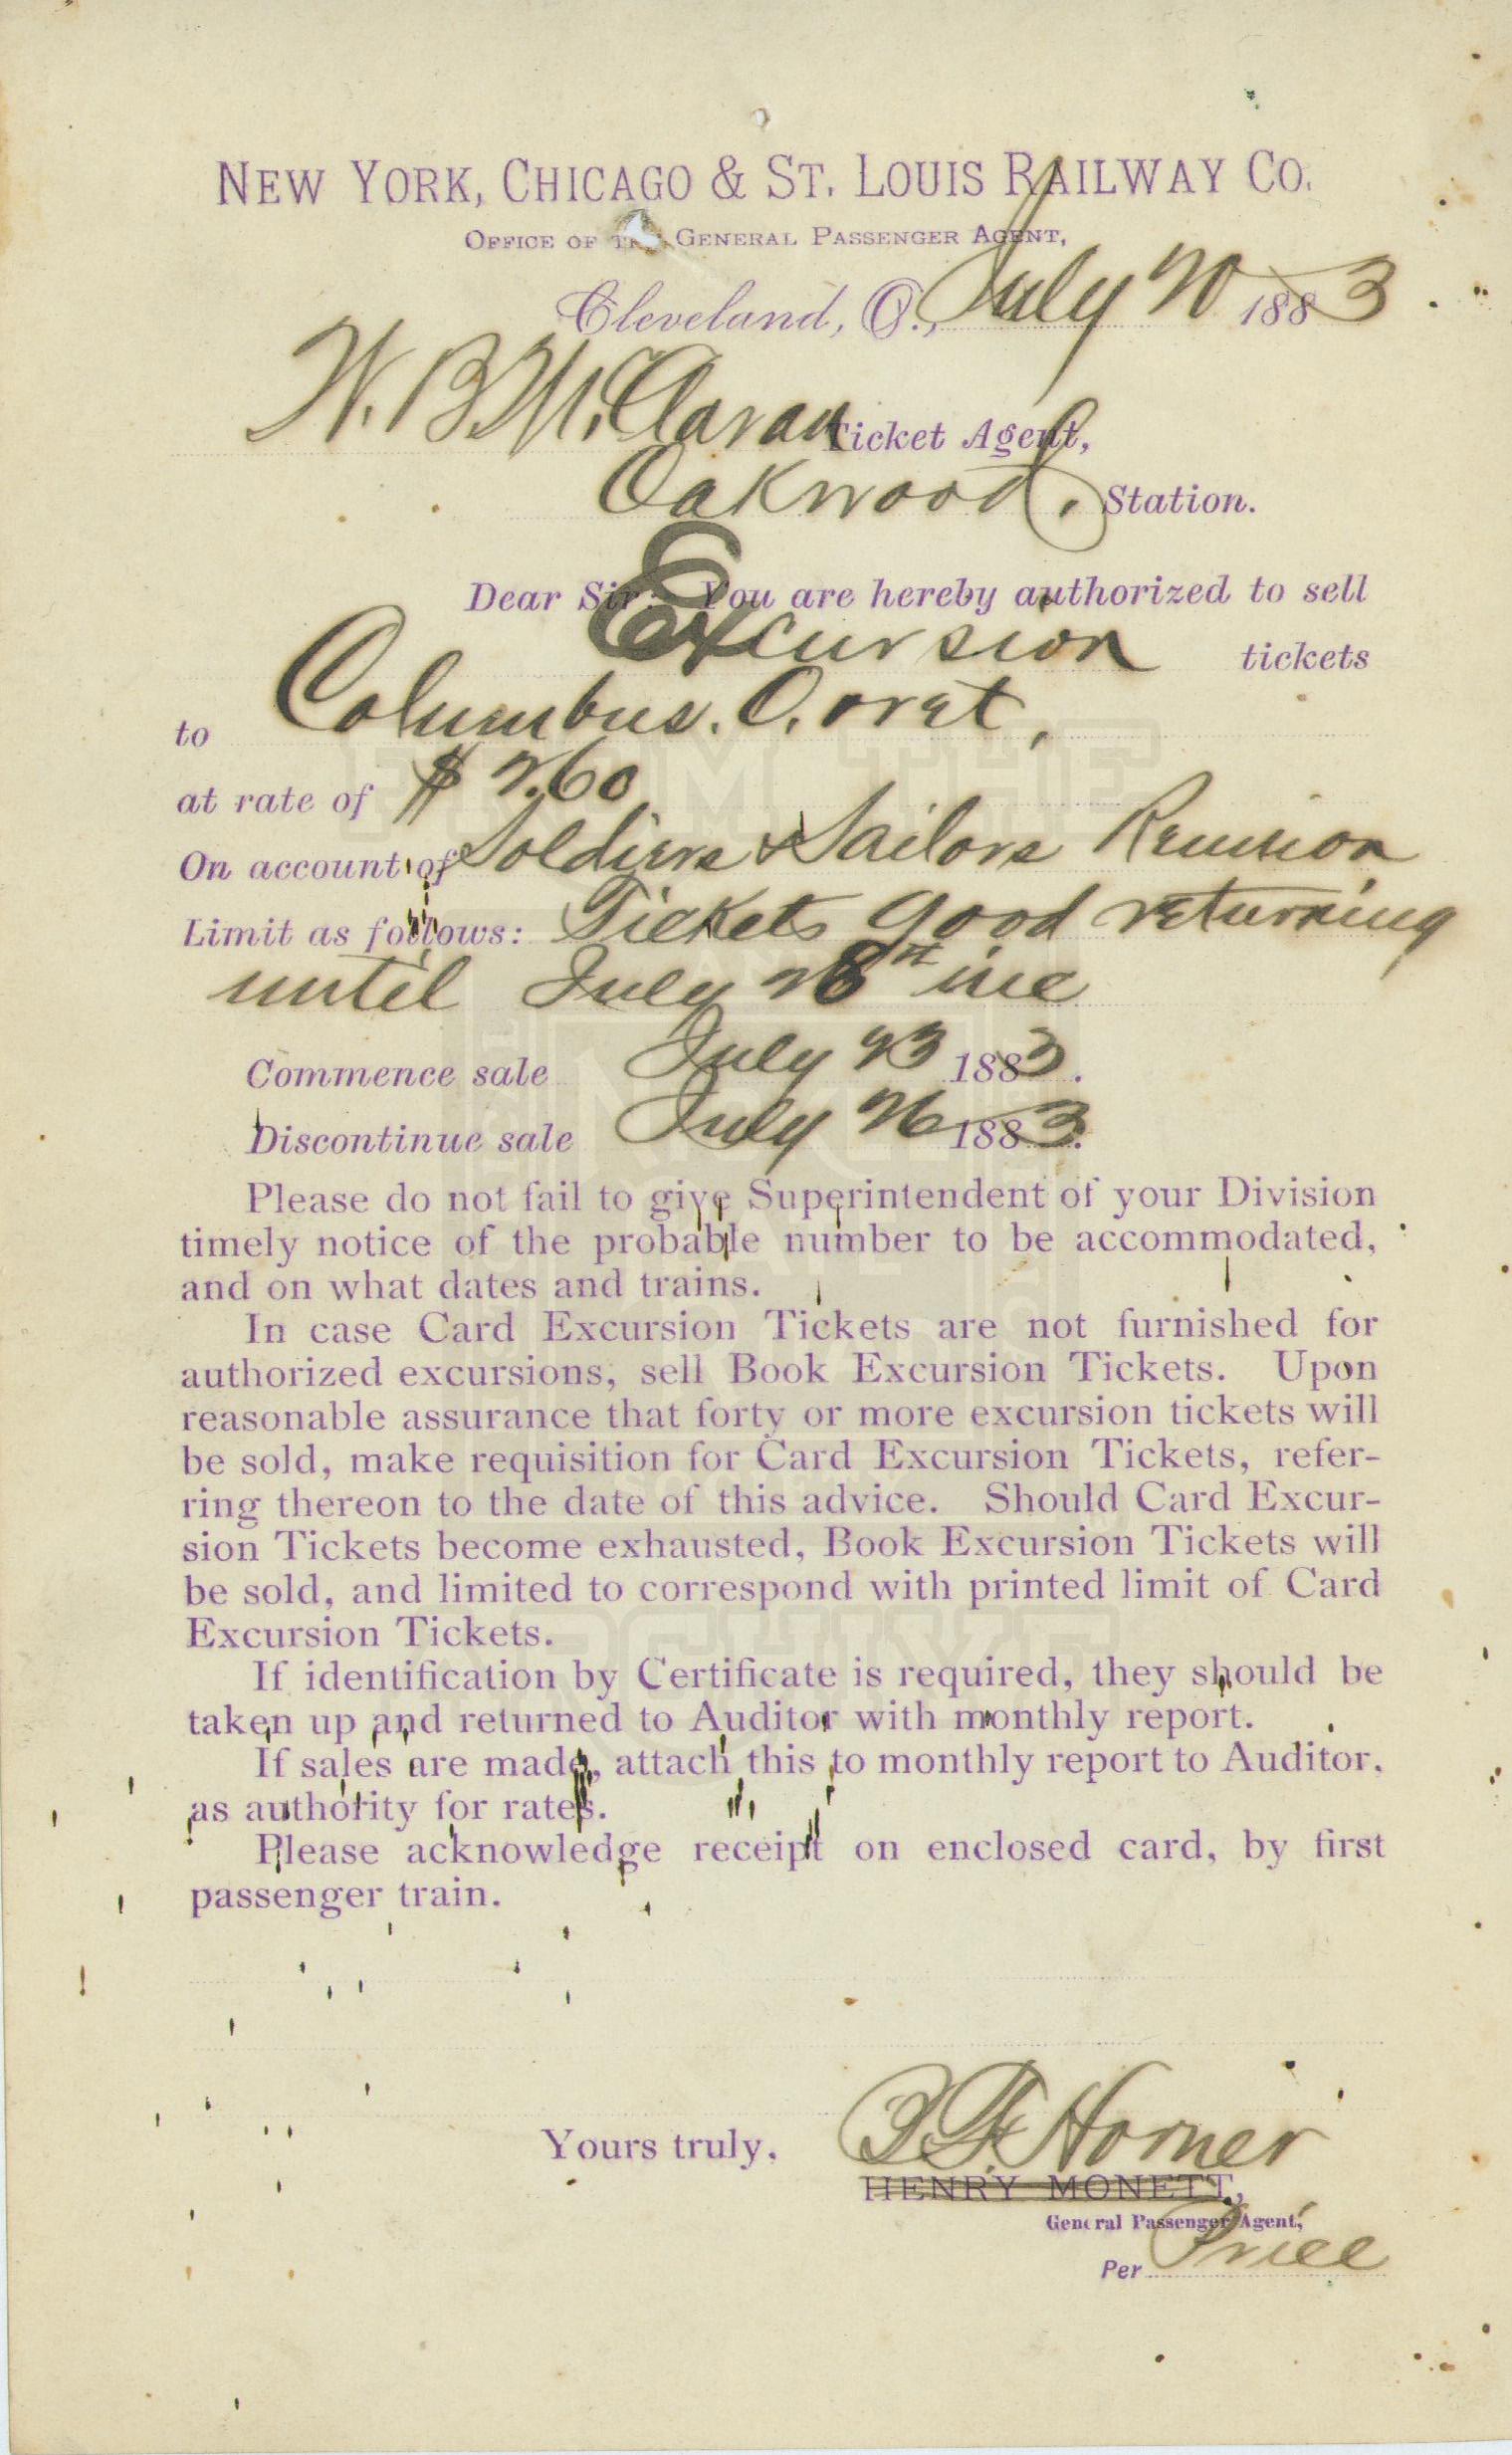 NEW YORK, CHICAGO & ST. LOUIS RAILWAY CO.
OFFICE OF THE GENERAL PASSENGER AGENT,
Cleveland, O., July 20 1883
W. B. McClaran Ticket Agent,
Oakwood, Station.
Dear Sir: You are hereby authorized to sell
Excursion tickets
to Columbus. O. &
at rate of $2.60
On account of Soldiers & Sailors Reunion
Limit as follows: Tickets good returning
until July 28 inc
Commence sale July 23 1883.
Discontinue sale July 26 1883.
Please do not fail to give Superintendent of your Division
timely notice of the probable number to be accommodated,
and on what dates and trains.
In case Card Excursion Tickets are not furnished for
authorized excursions, sell Book Excursion Tickets. Upon
reasonable assurance that forty or more excursion tickets will
be sold, make requisition for Card Excursion Tickets, refer-
ring thereon to the date of this advice. Should Card Excur-
sion Tickets become exhausted, Book Excursion Tickets will
be sold, and limited to correspond with printed limit of Card
Excursion Tickets.
If identification by Certificate is required, they should be
taken up and returned to Auditor with monthly report.
If sales are made, attach this to monthly report to Auditor,
as authority for rates.
Please acknowledge receipt on enclosed card, by first
passenger train.
Yours truly, Horner
HENRY MONETT,
General Passenger Agent,
Per Price
FROM THE
ARCHIVE